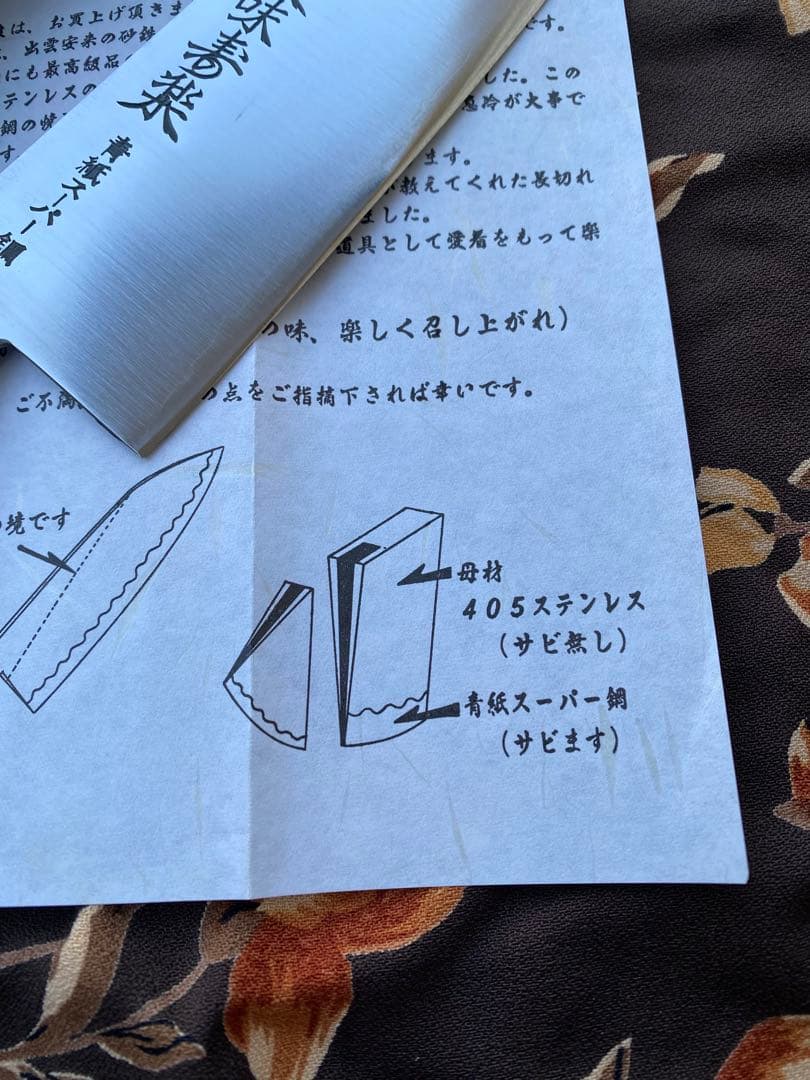 味寿楽
青紙スーパー鋼
は、お買上げ頂きま
、出雲安来の砂鉄
にも最高級品の
テンレスの
鋼の焼
す
です。
した。この
急冷が大事で
ます。
教えてくれた長切れ
ました。
道具として愛着をもって楽
の味、楽しく召し上がれ）
ご不満
の点をご指摘下されば幸いです。
の境です
母材
４０５ステンレス
（サビ無し）
青紙スーパー鋼
（サビます）